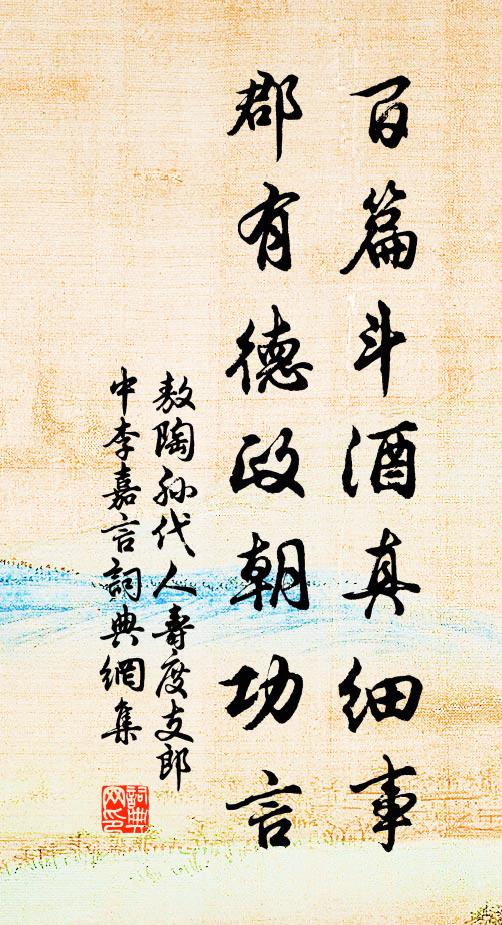 百篇斗酒真細事
郡有德政朝功言
敖陶孫代人壽度支郎
中李嘉言詞典網集
詞典
网印